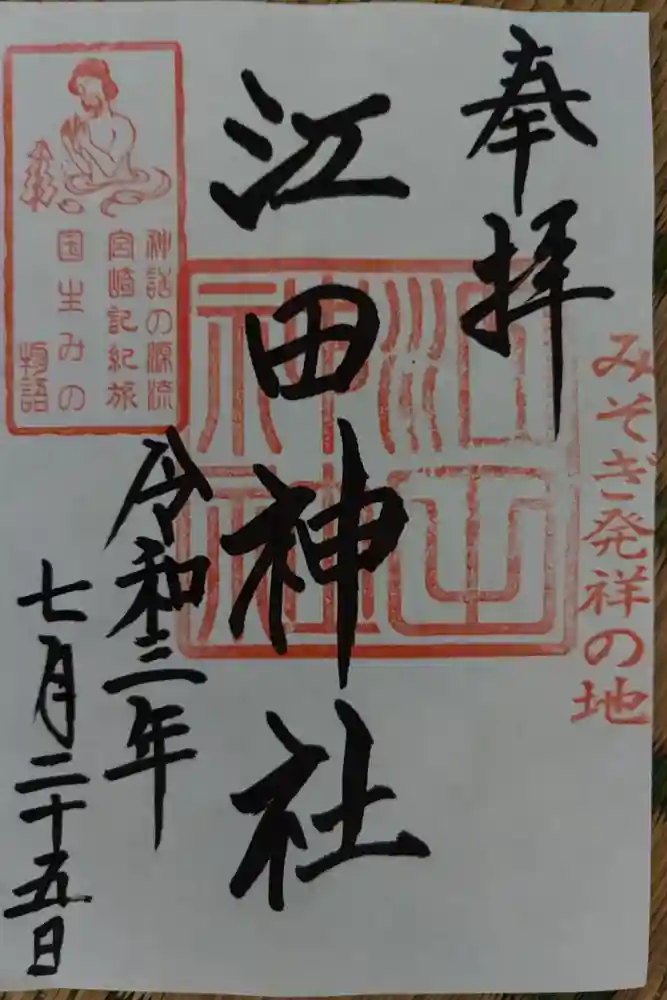 奉拝
みそぎ発祥の地
江田神社
江田神社
令和三年
七月二十五日
神話の源流
宮崎記紀旅
国生みの
物語